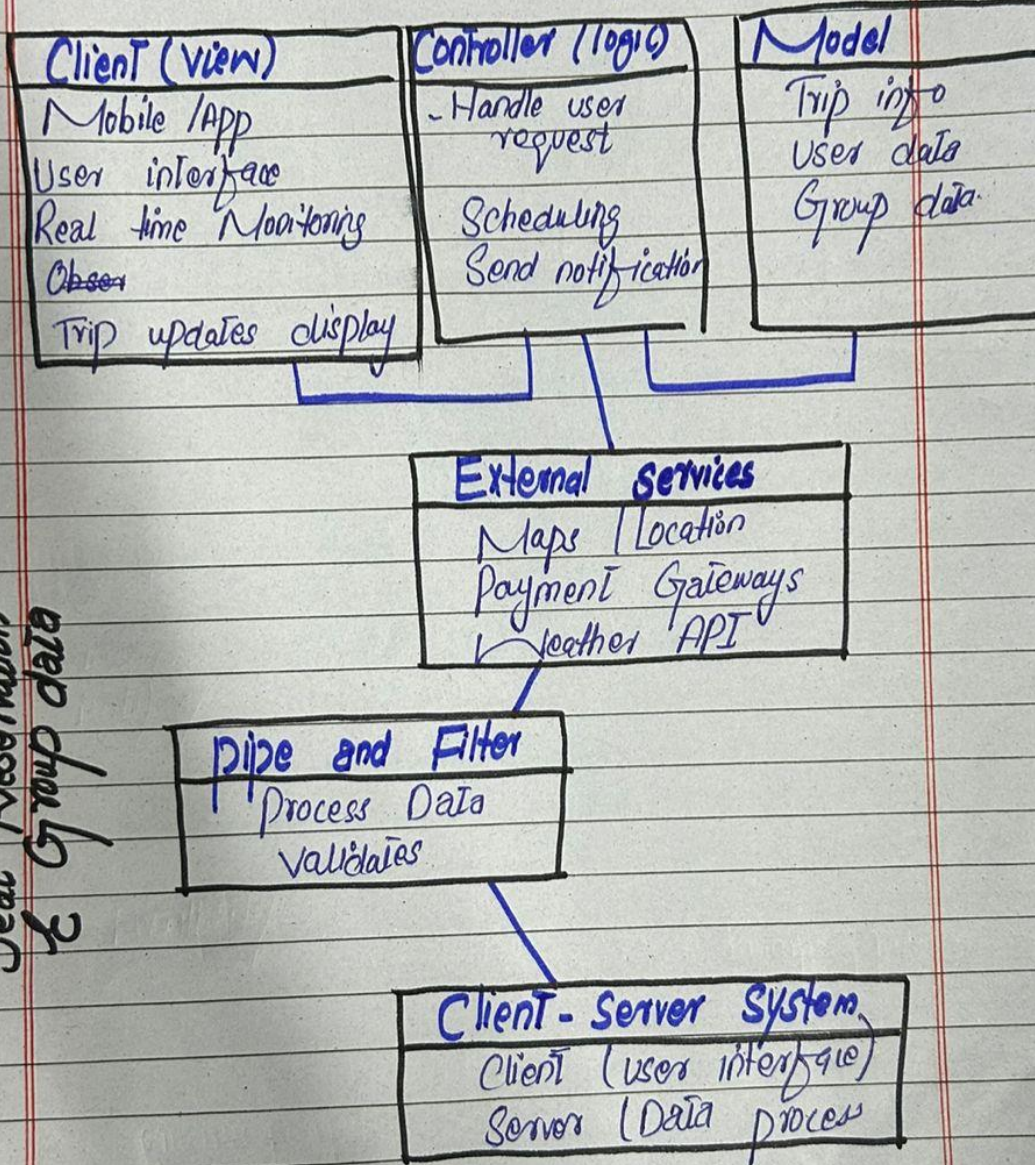 Client (view)
Mobile /App
User interface
Real time Monitoring
Obser
Trip updates display
Controller (logic)
- Handle user
request
Scheduling
Send notification
Model
Trip info
User data
Group data.
External services
Maps / Location
Payment Gateways
Weather API
Pipe and Filter
Process Data
Validates
Client - Server System
Client (user interface)
Server (Data process
& Group data